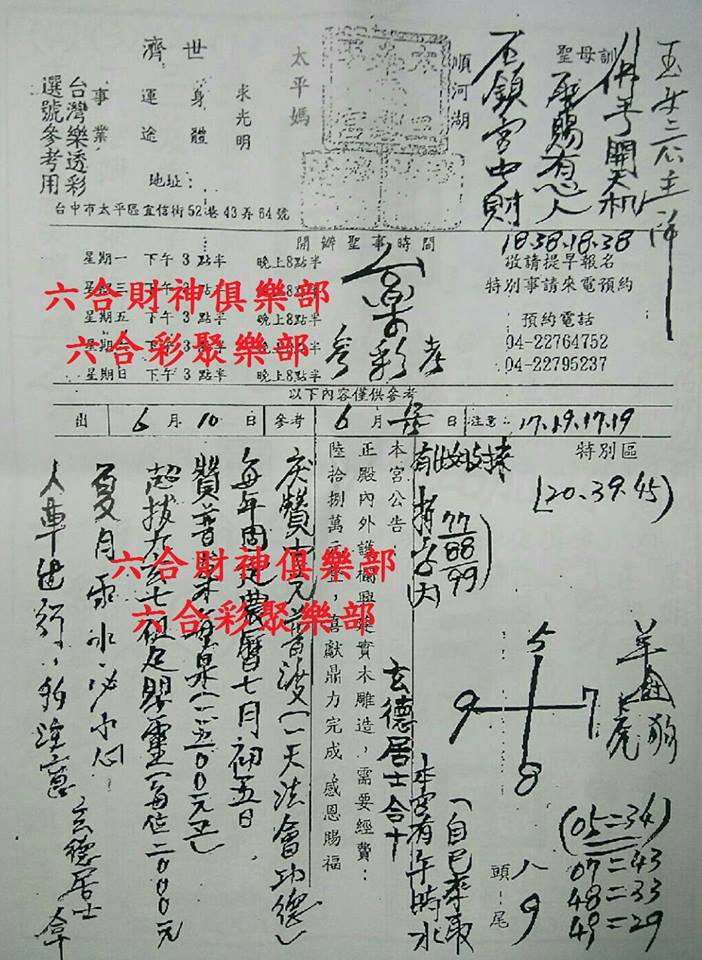 玉女三公主降
佛手開天机
聖母訓
聖賜有心人
石鎮宮中財
18.38.18.38
順河湖
太平媽
濟世
求光明
身體
運途
事業
台灣樂透彩
選號參考用
地址:
台中市太平區宜信街52巷43弄64號
開辦聖事時間
敬請提早報名
特別事請來電預約
預約電話
04-22764752
04-22795237
星期一 下午3點半 晚上8點半
星期三 下午3點半 晚上8點半
星期五 下午3點半 晚上8點半
下午3點半 晚上8點半
星期日 下午3點半 晚上8點半
六合財神俱樂部
六合彩聚樂部
參彩考
以下內容僅供參考
出 6月10日 參考 6月 日 注意: 17.19.17.19
特別區
(20.39.45)
77
88
99
本宮公告:
正殿內外護欄興建實木雕造,需要經費:
陸拾捌萬元,喜獻鼎力完成 感恩賜福
玄德居士合十
六合財神俱樂部
六合彩聚樂部
慶贊中元普渡(一天法會功德)
每年固定農曆七月初五日
(每位二000元
夏月雨水必小心
玄德居士
5
9 7
8
羊
狗
尾
(05=34)
07=43
48=33
49=29
頭 八
尾 9
(自己來取
本宮有午時水